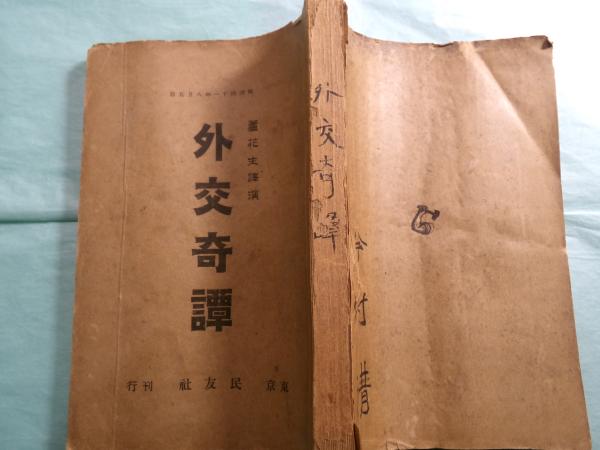 蘆花生譯演
外交奇譚
東京 民友社 刊行
外交奇譚
今村清